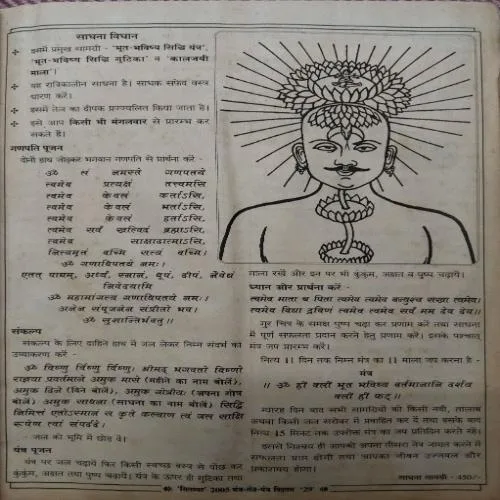 साधना विधान
इसमें प्रमुख सामग्री - 'भूत-भविष्य सिद्धि यंत्र',
'भूत-भविष्य सिद्धि गुटिका' व 'कालजयी
माला'।
यह रात्रिकालीन साधना है। साधक सफेद वस्त्र
धारण करें।
इसमें तेल का दीपक प्रज्ज्वलित किया जाता है।
इसे आप किसी भी मंगलवार से प्रारम्भ कर
सकते है।
गणपति पूजन
दोनों हाथ जोड़कर भगवान गणपति से प्रार्थना करें -
ॐ तं नमस्ते गणपतये
त्वमेव प्रत्यक्षं तत्त्वमसि,
त्वमेव केवलं कर्ताऽसि,
त्वमेव केवलं भर्ताऽसि,
त्वमेव केवलं हर्ताऽसि,
त्वमेव सर्वं खल्विदं ब्रह्माऽसि,
त्वमेव साक्षादात्माऽसि,
नित्यमृतं वच्मि सत्यं वच्मि।
ॐ गणाधिपतये नमः।
एतत् पाद्यम्, अर्घ्यं, स्नानं, धूपं, दीपं, नैवेद्यं
निवेदयामि
ॐ महामांगल्य गणाधिपतये नमः।
अनेन संपूजनेन संप्रीतो भव।
ॐ सुशान्तिर्भवतु।।
संकल्प
संकल्प के लिए दाहिने हाथ में जल लेकर निम्न संदर्भ का
उच्चारण करें -
ॐ विष्णु र्विष्णु र्विष्णु। श्रीमद् भगवतो विष्णो
राज्ञया प्रवर्तमाने अमुक मासे (महीने का नाम बोलें),
अमुक दिने (दिन बोलें), अमुक गोत्रीय: (अपना गोत्र
बोलें) अमुक साधना (साधना का नाम बोलें) सिद्धि
निमित्तं
- जल को भूमि में छोड़ दें।
यंत्र पूजन
यंत्र पर जल चढ़ायें फिर किसी स्वच्छ वस्त्र से पोंछ कर
कुंकुम, अक्षत तथा पुष्प चढ़ायें। यंत्र के ऊपर ही गुटिका तथा
माला रखें और इन पर भी कुंकुम, अक्षत व पुष्प चढ़ायें।
ध्यान और प्रार्थना करें -
त्वमेव माता च पिता त्वमेव त्वमेव बन्धुश्च सखा त्वमेव।
त्वमेव विद्या द्रविणं त्वमेव त्वमेव सर्वं मम देव देव।।
गुरु चित्र के समक्ष पुष्प चढ़ा कर प्रणाम करें तथा साधना
में पूर्ण सफलता प्रदान करने हेतु प्रणाम करें। इसके पश्चात्
मंत्र जप प्रारम्भ करें।
नित्य 11 दिन तक निम्न मंत्र का 11 माला जप करना है -
मंत्र
।। ॐ ह्रीं क्लीं भूत भविष्य वर्तमानानि दर्शय
क्लीं ह्रीं फट् ।।
ग्यारह दिन बाद सभी सामग्रियों को किसी नदी, तालाब
अथवा किसी जल सरोवर में प्रवाहित कर दें तथा इसके बाद
नित्य 15 मिनट तक उपरोक्त मंत्र का जप प्रतिदिन करते रहें।
इससे निश्चय ही आपको अपना तीसरा नेत्र जाग्रत करने में
सफलता प्राप्त होगी तथा आपका जीवन उज्ज्वल और
प्रकाशमय होगा।
साधना सामग्री - 450/-
'सितम्बर' 2005 मंत्र-तंत्र-यंत्र विज्ञान '29'